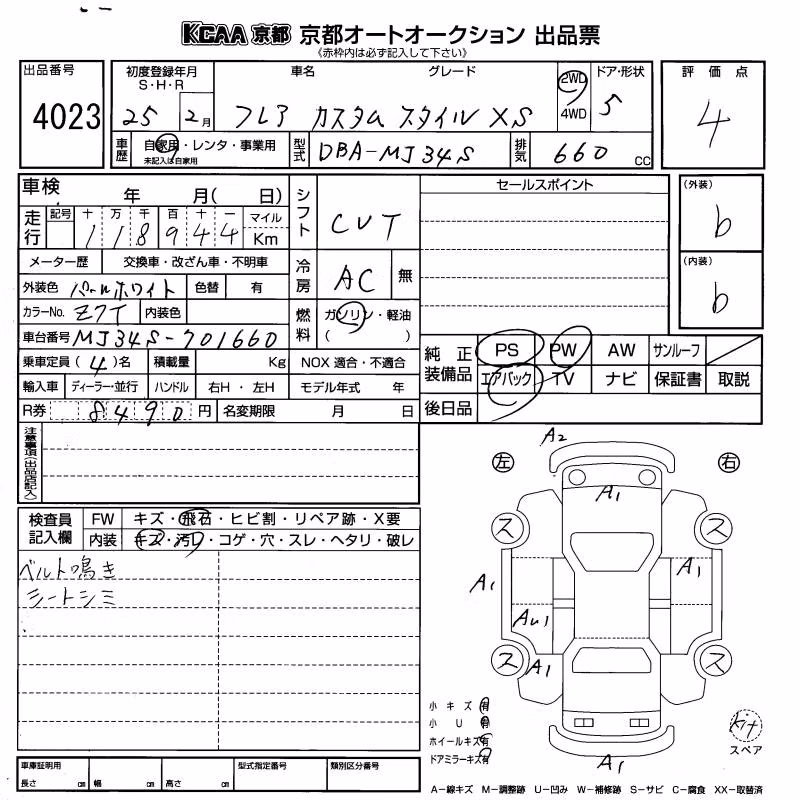 KCAA 京都 京都オートオークション 出品票
《赤枠内は必ず記入して下さい》
出品番号 初度登録年月 S・H・R 車名 グレード 2WD 4WD ドア・形状 評価点
4023 25 2月 フレア カスタム スタイル XS 5 4
車歴 自家用・レンタ・事業用 未記入は自家用 型式 DBA-MJ34S 排気 660 CC
車検 年 月( 日) シフト CVT セールスポイント (外装) b
走行 記号 十 万 千 百 十 一 マイル Km
118944
メーター歴 交換車・改ざん車・不明車 冷房 AC 無 (内装) b
外装色 パールホワイト 色替 有
カラーNo. Z7T 内装色 燃料 ガソリン・軽油 ( )
車台番号 MJ34S-701660
乗車定員 (4)名 積載量 Kg NOX 適合・不適合 純正装備品 PS PW AW サンルーフ
輸入車 ディーラー・並行 ハンドル 右H・左H モデル年式 年 エアバック TV ナビ 保証書 取説
R券 8490 円 名変期限 月 日 後日品
注意事項(出品店記入)
検査員記入欄 FW キズ・飛石・ヒビ割・リペア跡・X要
内装 キズ・汚レ・コゲ・穴・スレ・ヘタリ・破レ
ベルト鳴き
シートシミ
左 右
A2
A1
ス ス
A1 A1
AU1
ス A1 ス
A1
小キズ 有
小U 有
ホイールキズ 有
ドアミラーキズ 有
kit
スペア
車庫証明用 長さ cm 幅 cm 高さ cm 型式指定番号 類別区分番号
A-線キズ M-調整跡 U-凹み W-補修跡 S-サビ C-腐食 XX-取替済